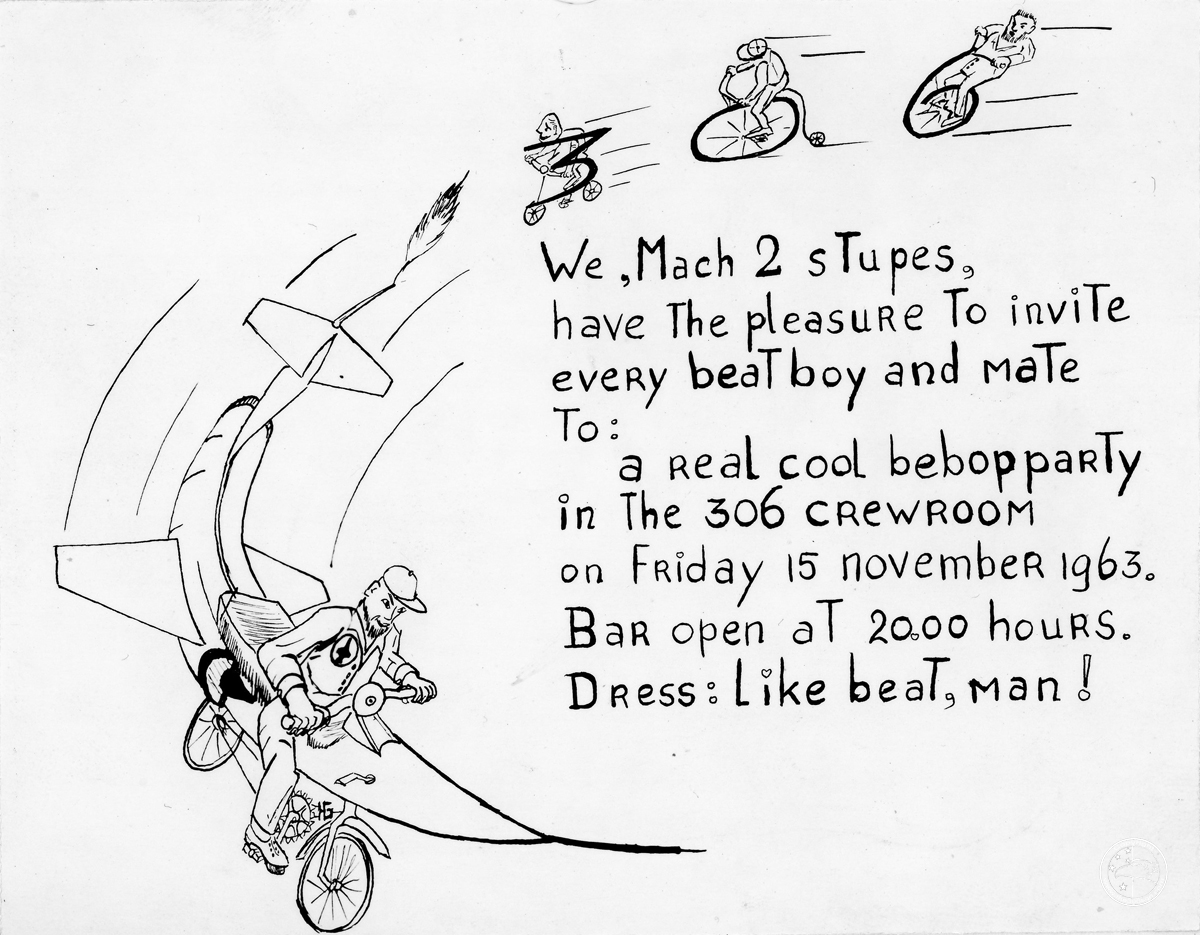 306
We, Mach 2 sTupes,
have The pleasuRe To inviTe
eveRy beaT boy and maTe
To:
a Real cool bebop paRTy
in The 306 CRewRoom
on FRiday 15 novembeR 1963.
BaR open aT 20.00 houRs.
DRess: Like beaT, man!
HG